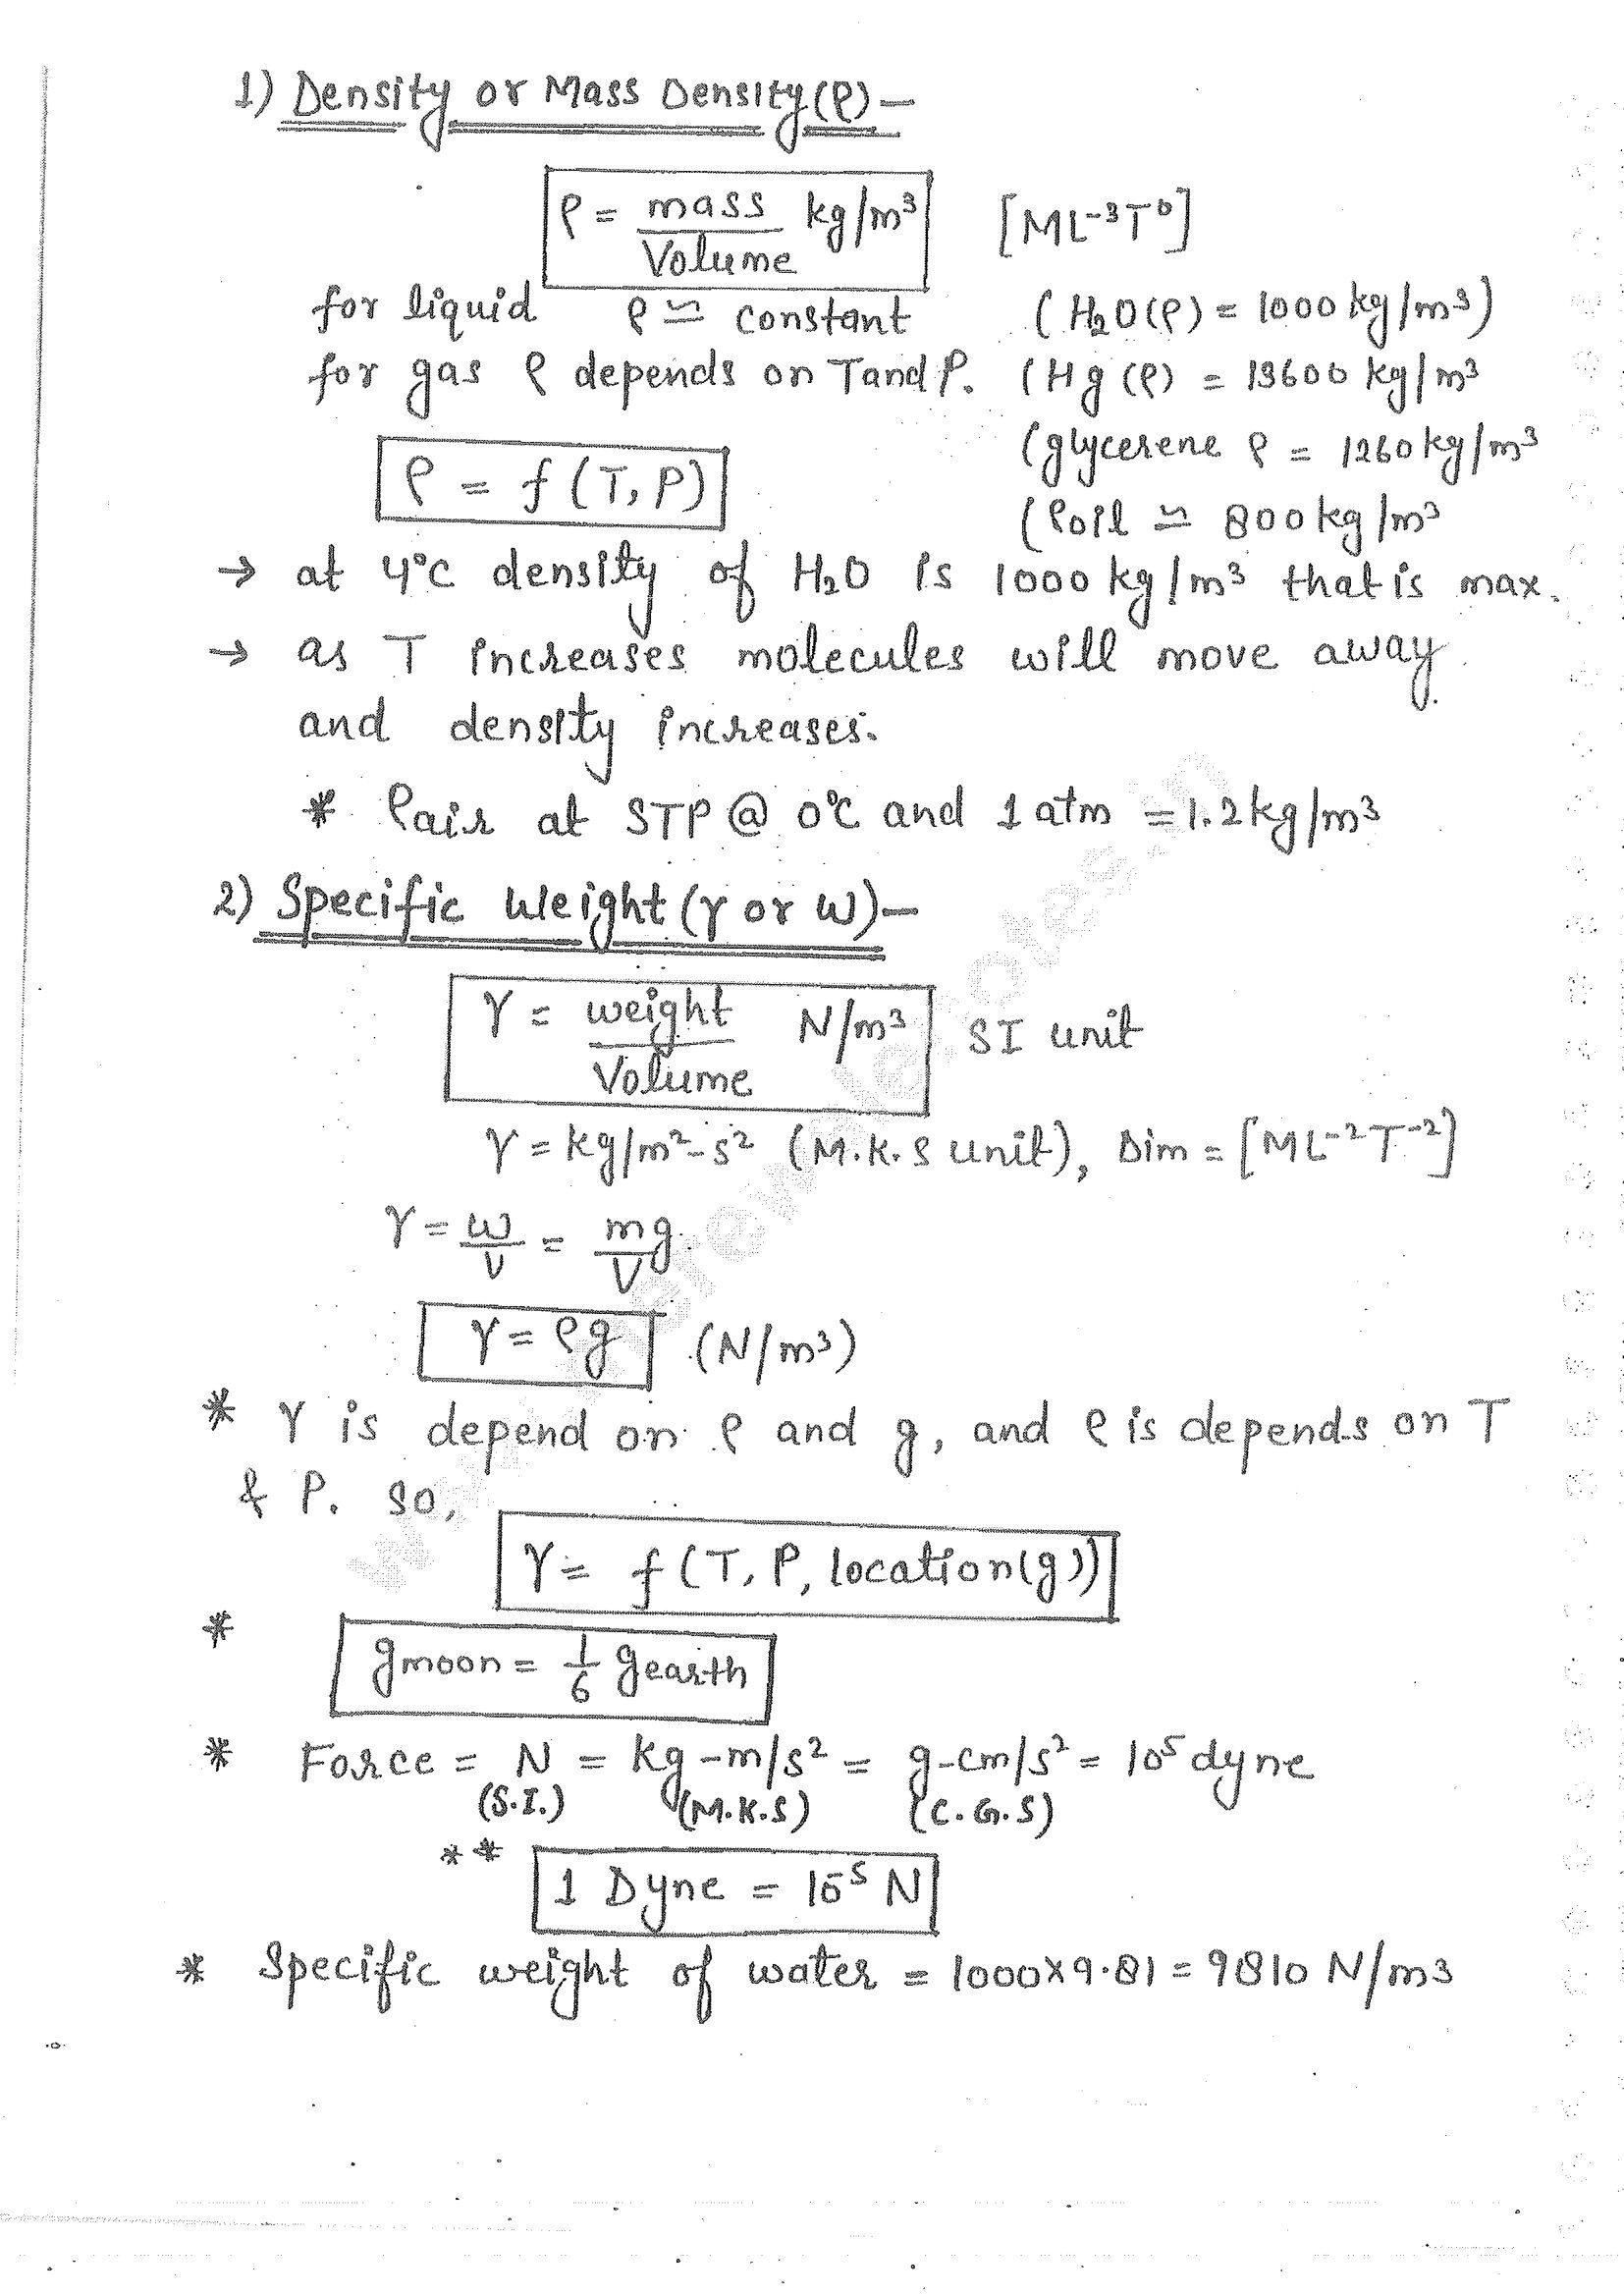 1) Density or Mass Density(ρ)–
ρ = mass/Volume kg/m³ [ML⁻³T⁰]
for liquid ρ ≃ constant (H₂O(ρ) = 1000 kg/m³)
for gas ρ depends on T and P. (Hg (ρ) = 13600 kg/m³
(glycerene ρ = 1260 kg/m³
ρ = f (T, P)
(ρoil ≃ 800 kg/m³
→ at 4°C density of H₂O is 1000 kg/m³ that is max.
→ as T increases molecules will move away
and density increases.
* ρair at STP @ 0°C and 1 atm = 1.2 kg/m³
2) Specific Weight (γ or w)–
γ = weight/Volume N/m³ SI unit
γ = kg/m²-s² (M.K.S unit), Dim = [ML⁻²T⁻²]
γ = w/V = mg/V
γ = ρg (N/m³)
* γ is depend on ρ and g, and ρ is depends on T
& P. so,
γ = f (T, P, location(g))
* gmoon = 1/6 gearth
* Force = N = kg-m/s² = g-cm/s² = 10⁵ dyne
(S.I.) (M.K.S) (C.G.S)
** 1 Dyne = 10⁻⁵ N
* Specific weight of water = 1000×9.81 = 9810 N/m³